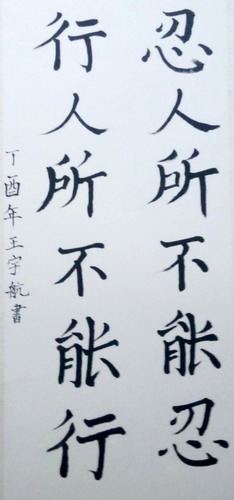 忍人所不能忍
行人所不能行
丁酉年王宇航書